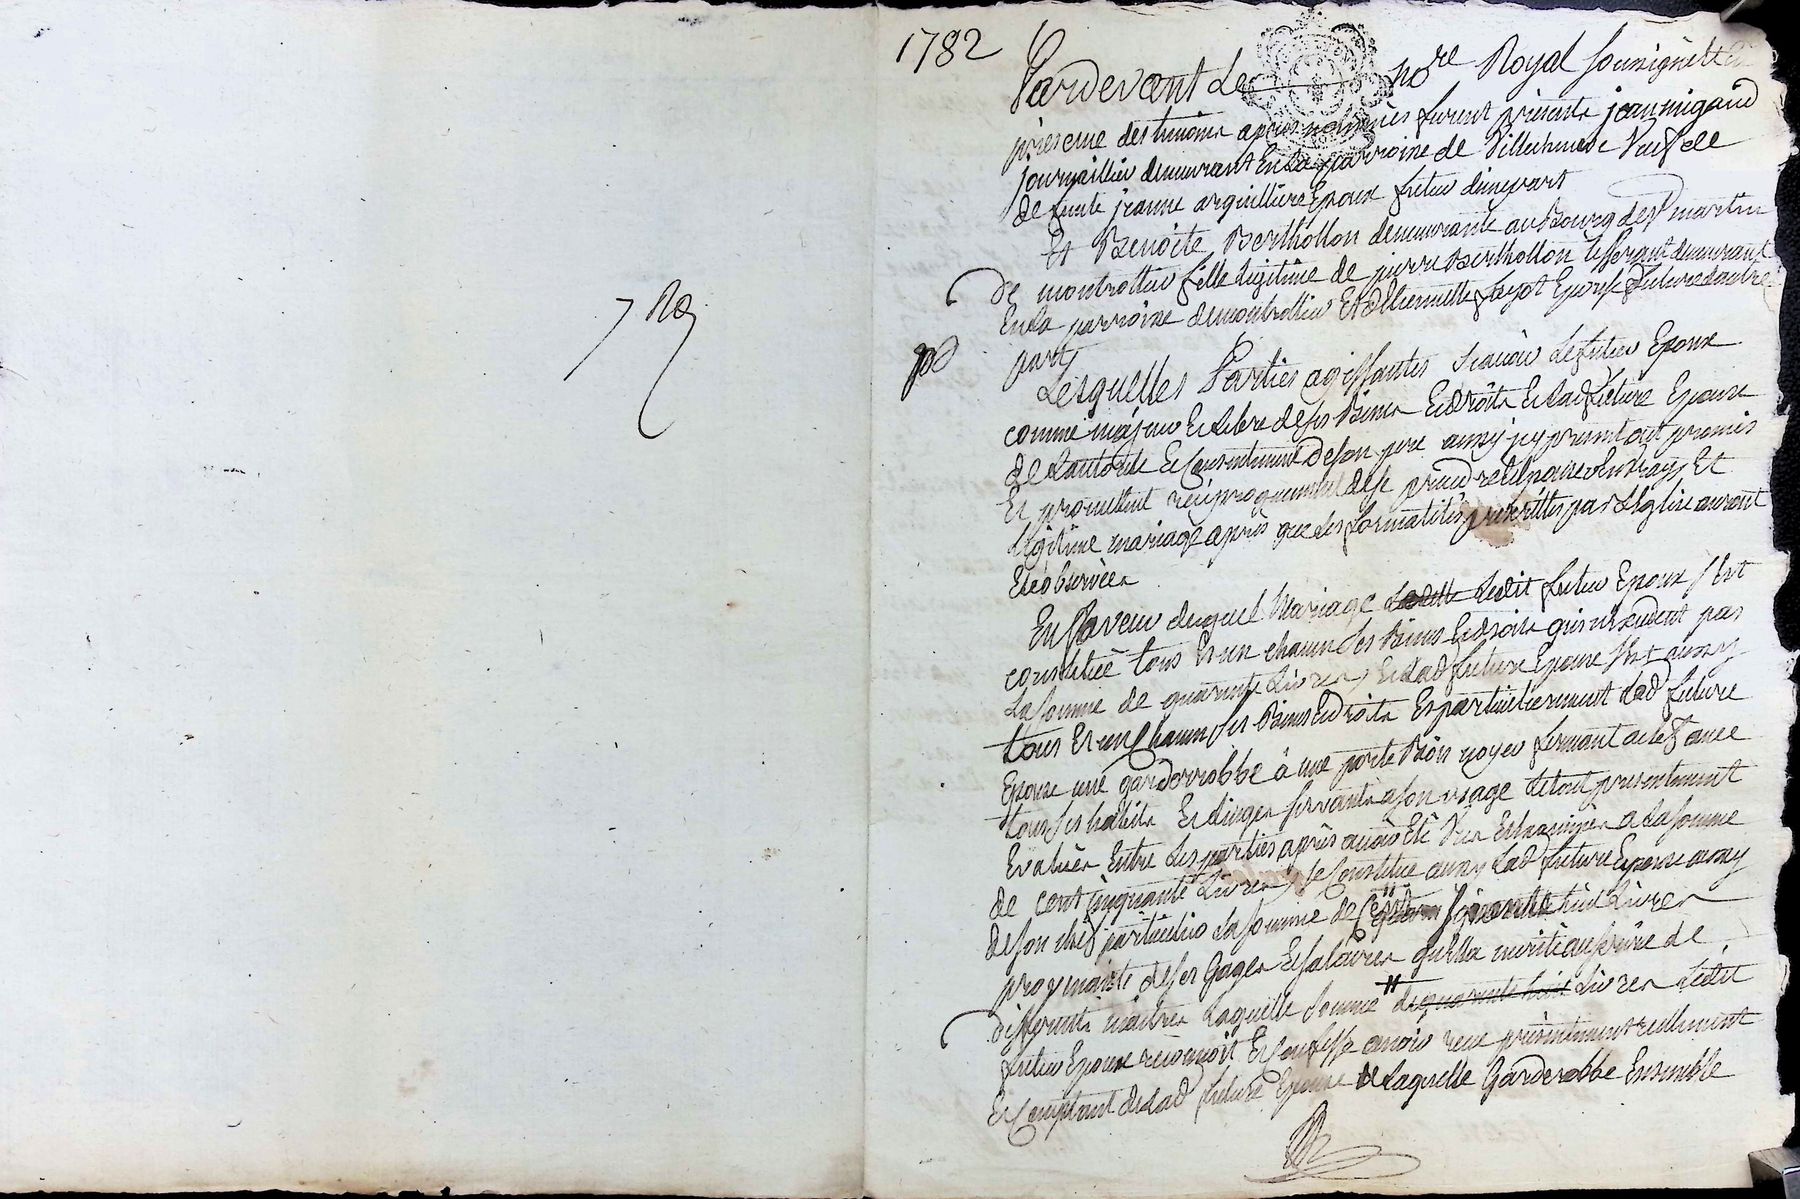 1782
Pardevant Le no.re Royal soussigné Et En
présence des temoins apres nommés furent présents jean migaud
journaillier demeurant En la parroisse de Villecheneve Veuf de
defunte jeanne arquilliere Epoux futur d'une part
Et Benoite Berthollon demeurante au Bourg de St martin
De montrottier fille legitime de pierre Berthollon tisserant demeurant
En la parroisse de montrottier Et d'Etiennette Epouse future d'autre
part
Lesquelles Parties agissantes scavoir Le futur Epoux
comme majeur Et Libre de ses Biens Et droits Et Lad future Epouse
de L'autorité Et Consentement De son pere aussy icy present ont promis
Et promettent réciproquement de se prendre Et Epouser En vray Et
Légitime mariage après que Les formalités prescrittes par L'église auront
Eté observées
En faveur duquel Mariage Ladite Ledit futur Epoux s'est
constitué tous Et un chacun ses Biens Et droits qui n'Excedent pas
La somme de quarante Livres, Et Lad future Epouse s'est aussy
tous Et un Chacun ses Biens Et droits Et particulierement Lad future
Epouse une garderrobbe à une porte Bois noyer fermant a clef avec
tous ses habits Et linges servants a son usage Le tout presentement
Evalués Entre Les parties après avoir Eté Vus Et Examinés a La somme
de cent cinquante Livres, se Constitue aussy Lad future Epouse aussy
de son chef particulier La somme de huit Livres
provenante de ses Gages Et salaires qu'Elle a merité au service de
differents maitres Laquelle somme de quarante huit Livres Ledit
futur Epoux reconnoit Et Confesse avoir reçu présentement reellement
Et Comptant de Lad future Epouse Laquelle Garderobbe Ensemble